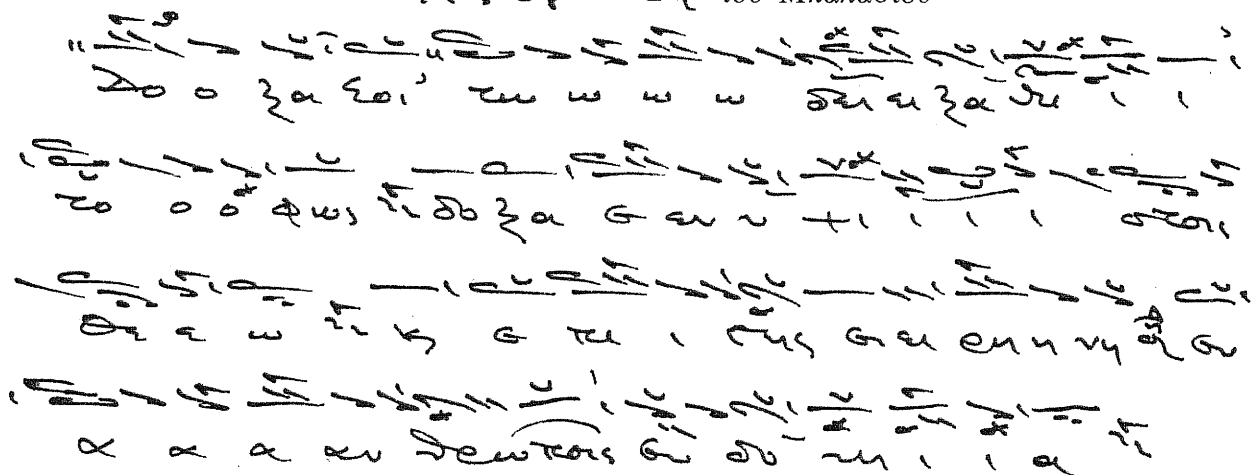 Δο ο ξα σοι τω ω ω ω δει ει ξα ντι ι ι
το ο ο φως δο ξα ε εν υ ψι ι ι ι στοις
Θε ε ω ϗ ε πι ι γης ει ει ρη η νη εν
α α α αν θρω ποις ευ δο κι ι ι α